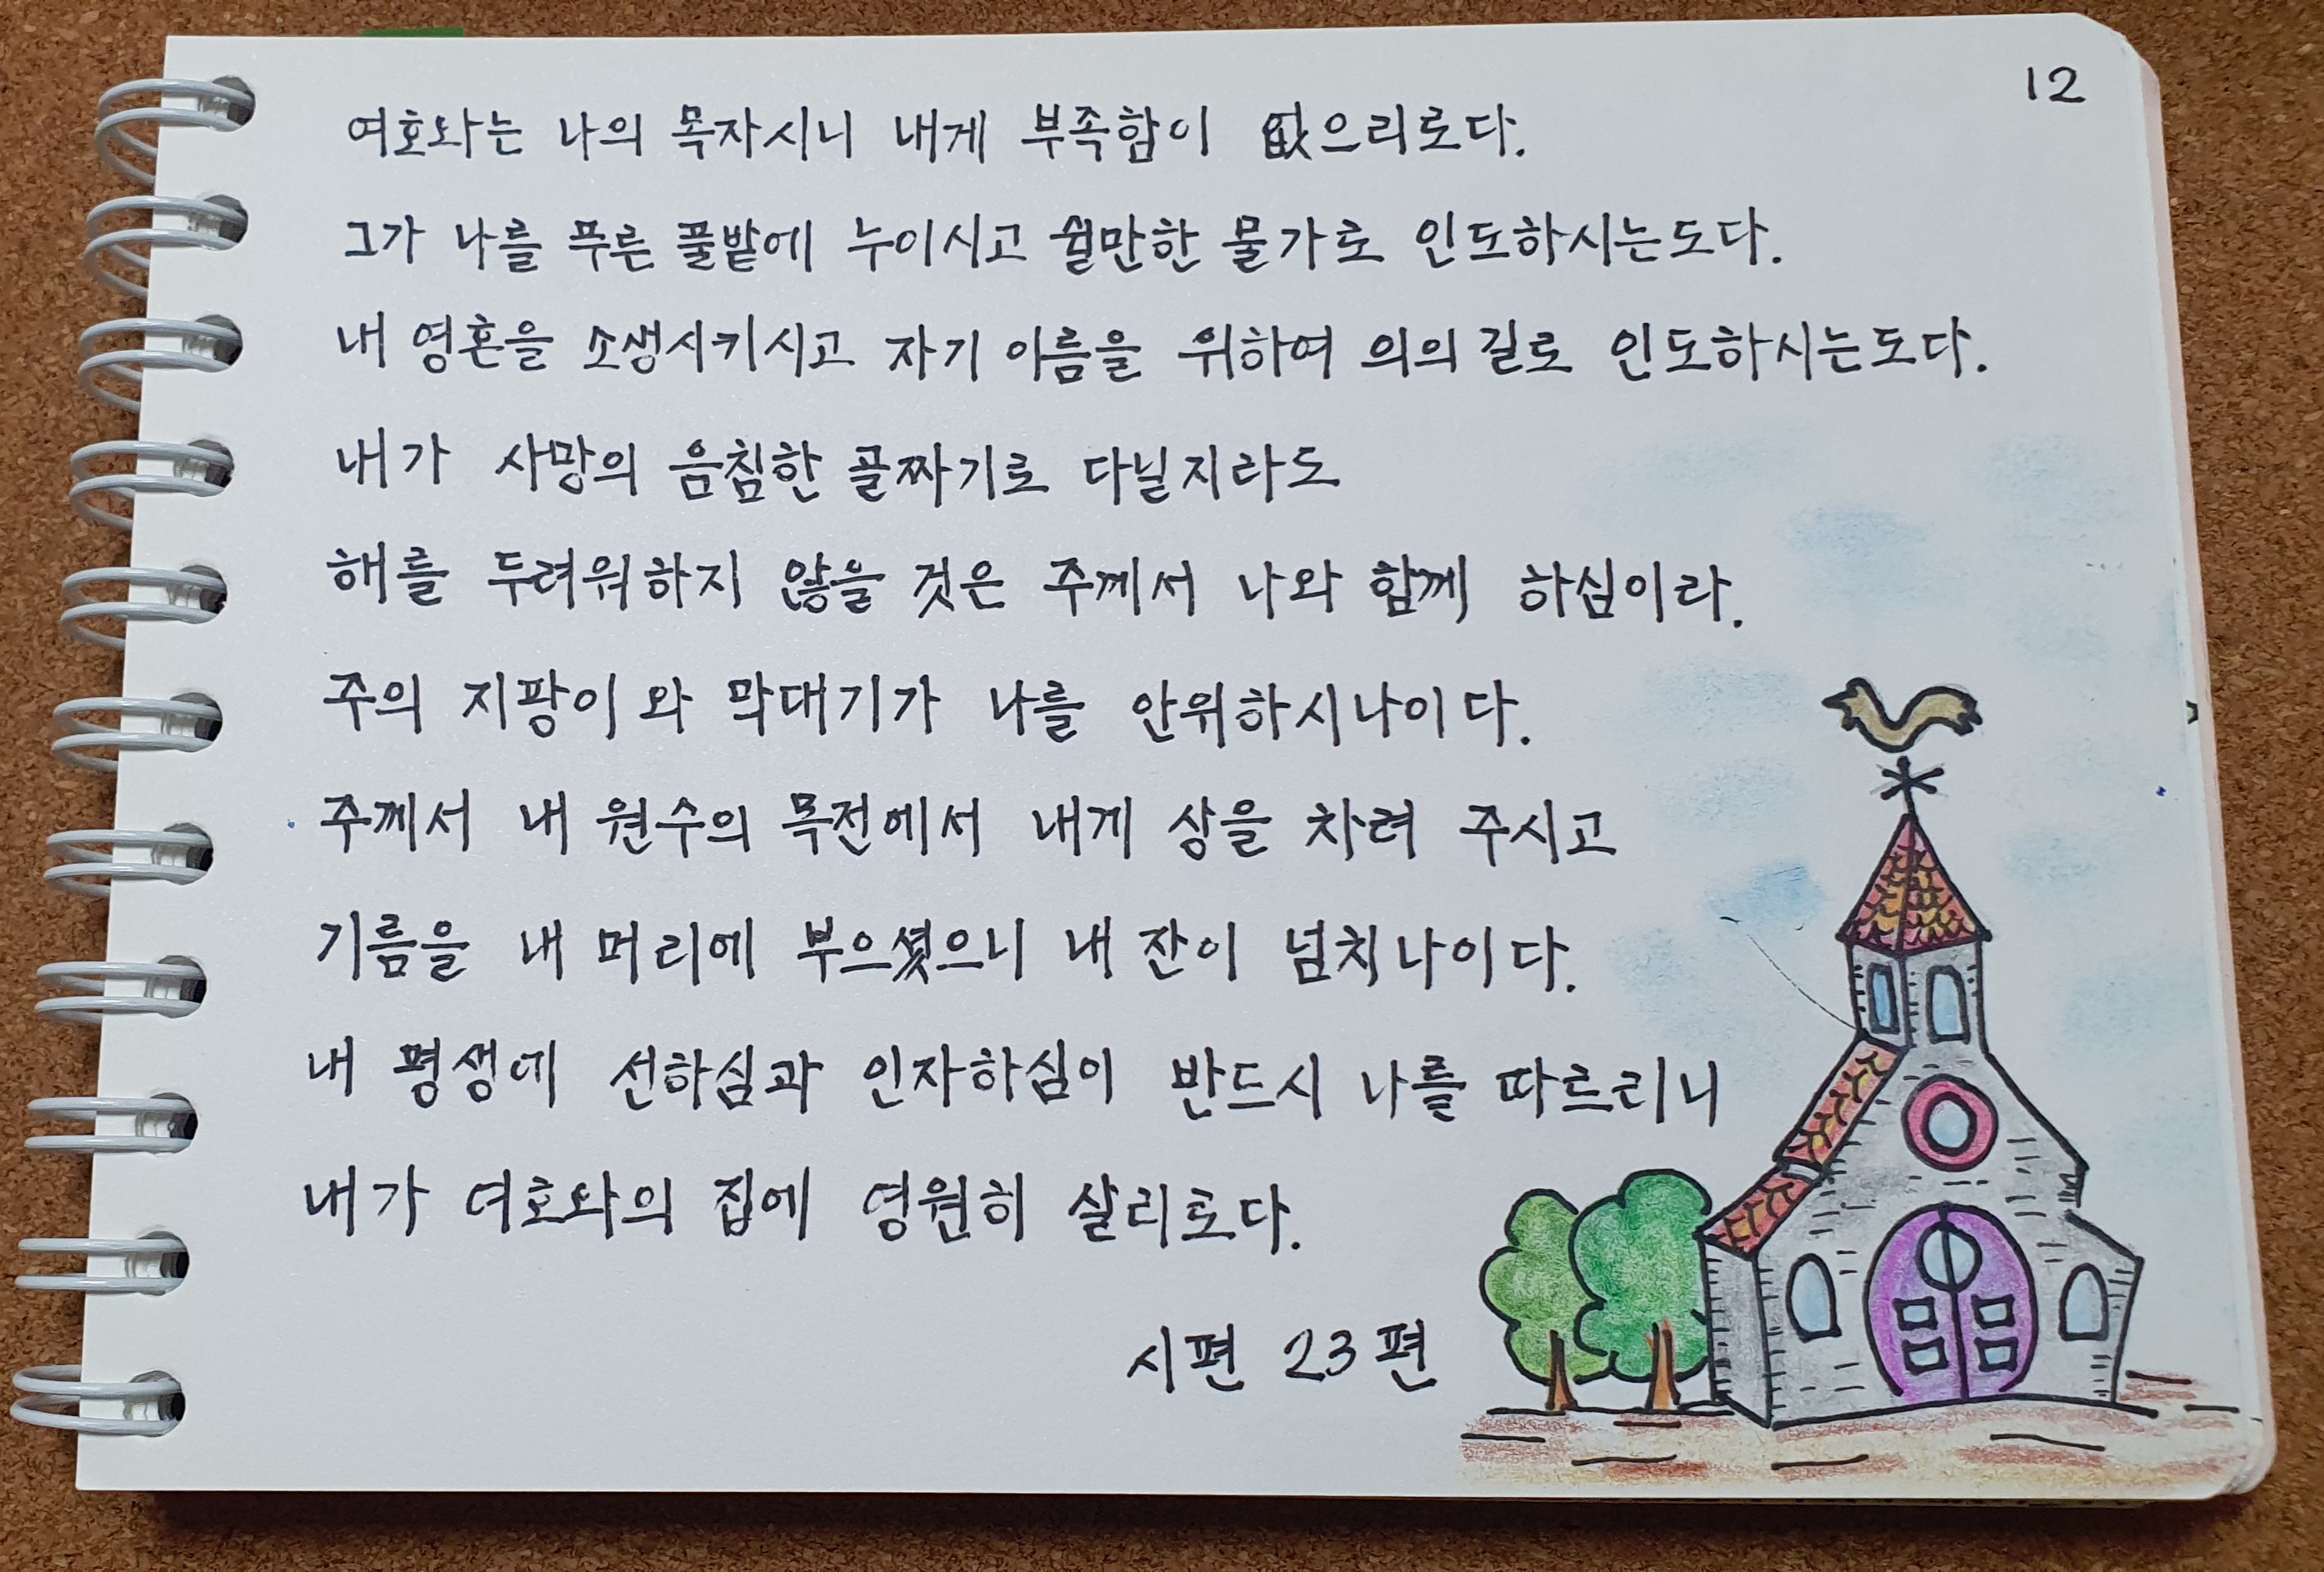 12
여호와는 나의 목자시니 내게 부족함이 없으리로다.
그가 나를 푸른 풀밭에 누이시고 쉴만한 물가로 인도하시는도다.
내 영혼을 소생시키시고 자기 이름을 위하여 의의 길로 인도하시는도다.
내가 사망의 음침한 골짜기로 다닐지라도
해를 두려워하지 않을 것은 주께서 나와 함께 하심이라.
주의 지팡이와 막대기가 나를 안위하시나이다.
주께서 내 원수의 목전에서 내게 상을 차려 주시고
기름을 내 머리에 부으셨으니 내 잔이 넘치나이다.
내 평생에 선하심과 인자하심이 반드시 나를 따르리니
내가 여호와의 집에 영원히 살리로다.
시편 23편